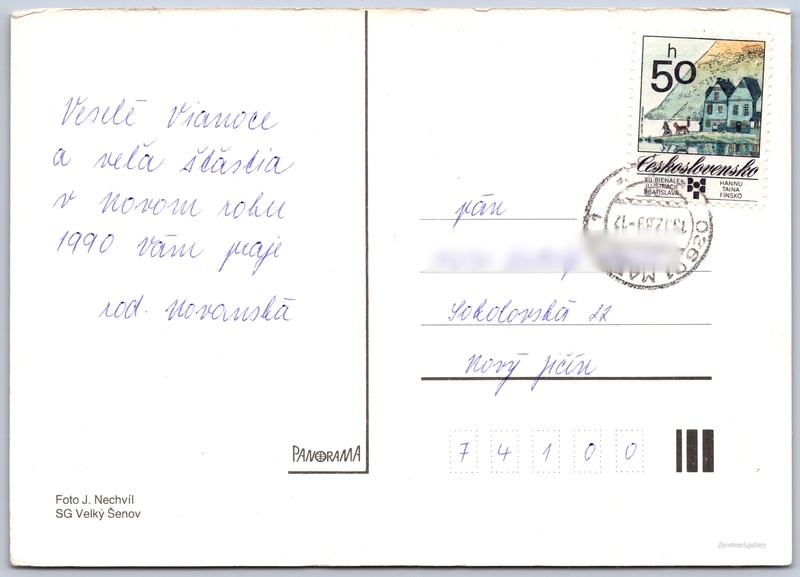 Veselé Vianoce
a veľa šťastia
v Novom roku
1990 Vám praje
rod. Novanská
PANORAMA
Foto J. Nechvíl
SG Velký Šenov
h
50
Československo
XII. BIENALE
ILUSTRACIÍ
BRATISLAVA
HANNU
TAINA
FÍNSKO
pán
Sokolovská 22
Nový Jičín
7 4 1 0 0